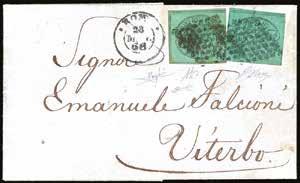 ROMA
23
68
Signor
Emanuele Falcioni
Viterbo.